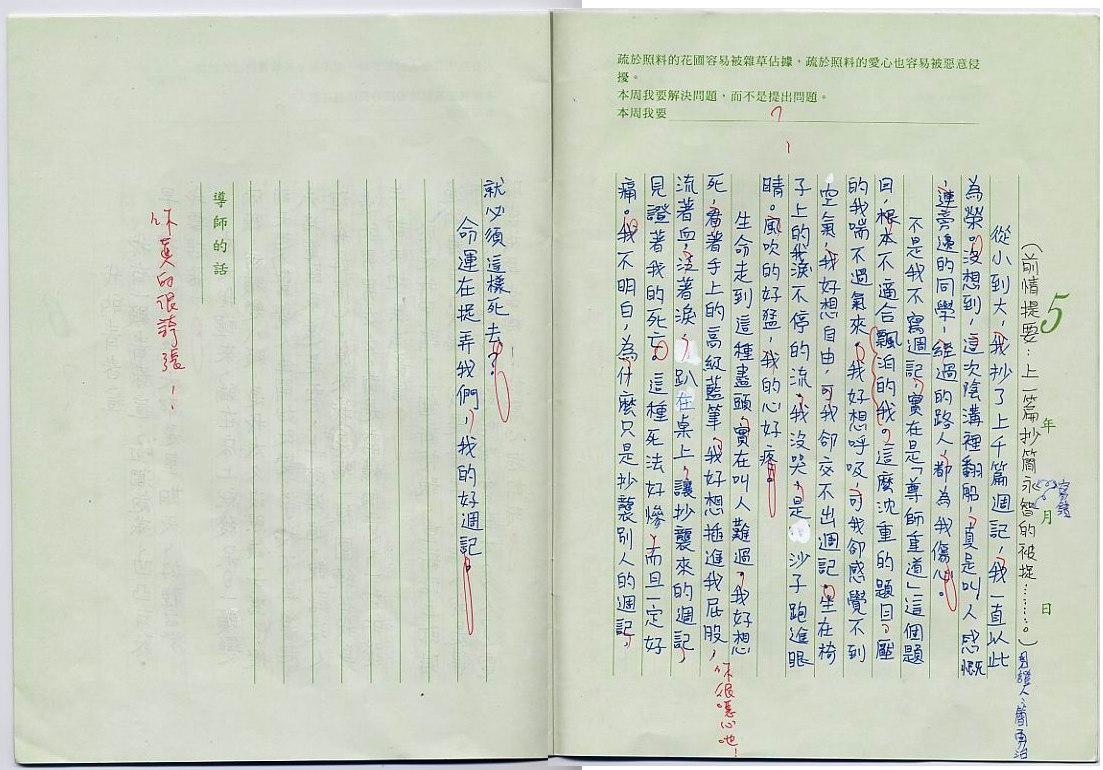 疏於照料的花圃容易被雜草佔據，疏於照料的愛心也容易被惡意侵
擾。
本周我要解決問題，而不是提出問題。
本周我要
?
5
年 月 日
(前情提要：上一篇抄簡永智的被捉……。)
從小到大，我抄了上千篇週記，我一直以此
為榮。沒想到，這次陰溝裡翻船，真是叫人感慨
，連旁邊的同學，經過的路人，都為我傷心。
不是我不寫週記，實在是「尊師重道」這個題
目，根本不適合飄泊的我。這麼沈重的題目，壓
的我喘不過氣來。我好想呼吸，可我卻感覺不到
空氣，我好想自由，可我卻交不出週記。坐在椅
子上的我淚不停的流，我沒哭，是沙子跑進眼
睛。風吹的好猛，我的心好疼。
生命走到這種盡頭，實在叫人難過。我好想
死，看著手上的高級藍筆，我好想插進我屁股，
你很噁心吔！
流著血，泛著淚，趴在桌上，讓抄襲來的週記，
見證著我的死亡。這種死法好慘，而且一定好
痛。我不明白，為什麼只是抄襲別人的週記，
就必須這樣死去？
命運在捉弄我們，我的好週記。
導師的話
你真的很誇張！